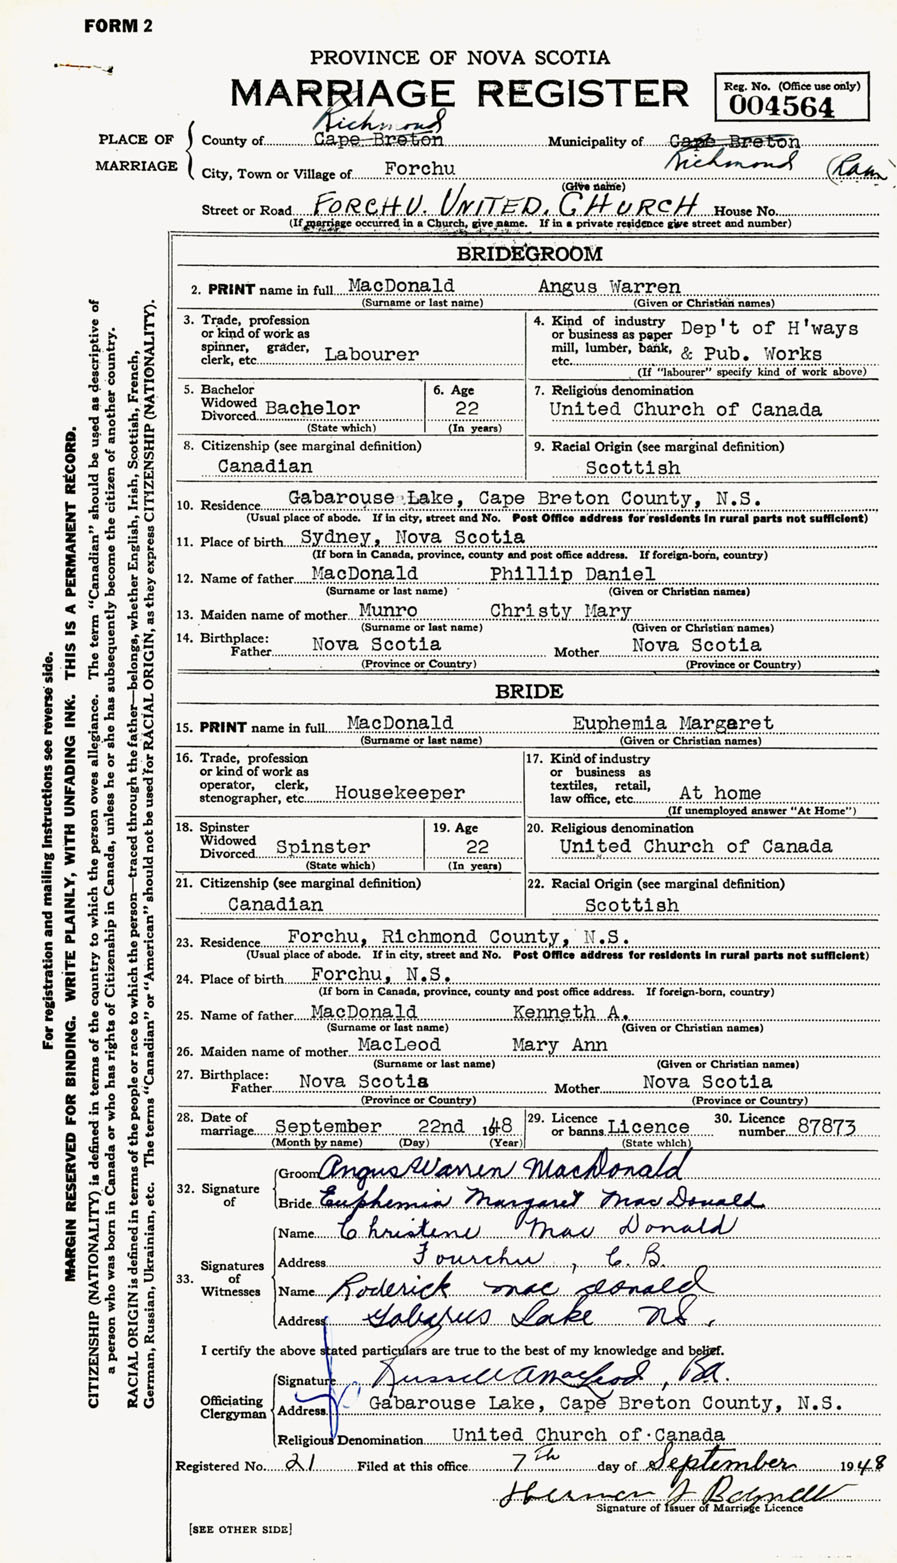 FORM 2
PROVINCE OF NOVA SCOTIA
MARRIAGE REGISTER
Reg. No. (Office use only)
004564
PLACE OF MARRIAGE
Richmond
County of Cape Breton Municipality of Cape Breton
Richmond
City, Town or Village of Forchu
(Give name)
Street or Road FORCHU. UNITED. CHURCH House No.
(If marriage occurred in a Church, give name. If in a private residence give street and number)
BRIDEGROOM
2. PRINT name in full MacDonald Angus Warren
(Surname or last name) (Given or Christian names)
3. Trade, profession or kind of work as spinner, grader, clerk, etc. Labourer
4. Kind of industry or business as paper mill, lumber, bank, etc. Dep't of H'ways & Pub. Works
(If "labourer" specify kind of work above)
5. Bachelor Widowed Divorced Bachelor
(State which)
6. Age 22
(In years)
7. Religious denomination
United Church of Canada
8. Citizenship (see marginal definition)
Canadian
9. Racial Origin (see marginal definition)
Scottish
10. Residence Gabarouse Lake, Cape Breton County, N.S.
(Usual place of abode. If in city, street and No. Post Office address for residents in rural parts not sufficient)
11. Place of birth Sydney, Nova Scotia
(If born in Canada, province, county and post office address. If foreign-born, country)
12. Name of father MacDonald Phillip Daniel
(Surname or last name) (Given or Christian names)
13. Maiden name of mother Munro Christy Mary
(Surname or last name) (Given or Christian names)
14. Birthplace: Father Nova Scotia Mother Nova Scotia
(Province or Country) (Province or Country)
BRIDE
15. PRINT name in full MacDonald Euphemia Margaret
(Surname or last name) (Given or Christian names)
16. Trade, profession or kind of work as operator, clerk, stenographer, etc. Housekeeper
17. Kind of industry or business as textiles, retail, law office, etc. At home
(If unemployed answer "At Home")
18. Spinster Widowed Divorced Spinster
(State which)
19. Age 22
(In years)
20. Religious denomination
United Church of Canada
21. Citizenship (see marginal definition)
Canadian
22. Racial Origin (see marginal definition)
Scottish
23. Residence Forchu, Richmond County, N.S.
(Usual place of abode. If in city, street and No. Post Office address for residents in rural parts not sufficient)
24. Place of birth Forchu, N.S.
(If born in Canada, province, county and post office address. If foreign-born, country)
25. Name of father MacDonald Kenneth A.
(Surname or last name) (Given or Christian names)
26. Maiden name of mother MacLeod Mary Ann
(Surname or last name) (Given or Christian names)
27. Birthplace: Father Nova Scotia Mother Nova Scotia
(Province or Country) (Province or Country)
28. Date of marriage September 22nd 1948
(Month by name) (Day) (Year)
29. Licence or banns Licence
(State which)
30. Licence number 87873
32. Signature of
Groom Angus Warren MacDonald
Bride Euphemia Margaret MacDonald
33. Signatures of Witnesses
Name Christene Mac Donald
Address Fourchu, C.B.
Name Roderick Mac Donald
Address Gabarus Lake NS.
I certify the above stated particulars are true to the best of my knowledge and belief.
Officiating Clergyman
Signature Russell A MacLeod, BA.
Address Gabarouse Lake, Cape Breton County, N.S.
Religious Denomination United Church of Canada
Registered No. 21 Filed at this office 7th day of September 1948
Herman J
Signature of Issuer of Marriage Licence
[SEE OTHER SIDE]
For registration and mailing instructions see reverse side.
MARGIN RESERVED FOR BINDING. WRITE PLAINLY, WITH UNFADING INK. THIS IS A PERMANENT RECORD.
CITIZENSHIP (NATIONALITY) is defined in terms of the country to which the person owes allegiance. The term "Canadian" should be used as descriptive of
a person who was born in Canada or who has rights of Citizenship in Canada, unless he or she has subsequently become the citizen of another country.
RACIAL ORIGIN is defined in terms of the people or race to which the person—traced through the father—belongs, whether English, Irish, Scottish, French,
German, Russian, Ukrainian, etc. The terms "Canadian" or "American" should not be used for RACIAL ORIGIN, as they express CITIZENSHIP (NATIONALITY).